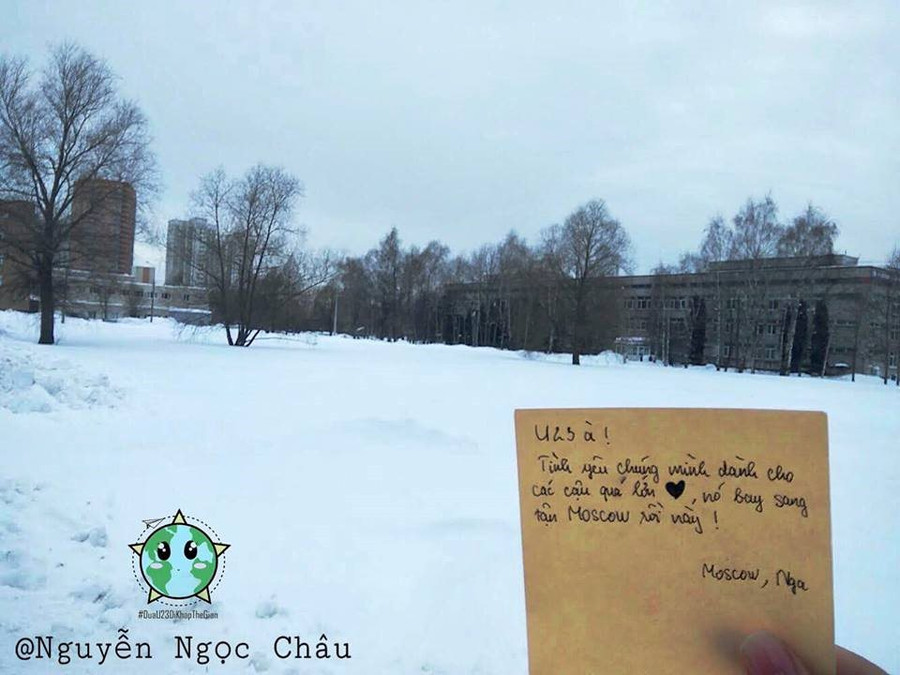 U23 à !
Tình yêu chúng mình dành cho
các cậu quá lớn ♥, nó bay sang
tận Moscow rồi này !
Moscow, Nga
#DuaU23DiKhapTheGian
@Nguyễn Ngọc Châu